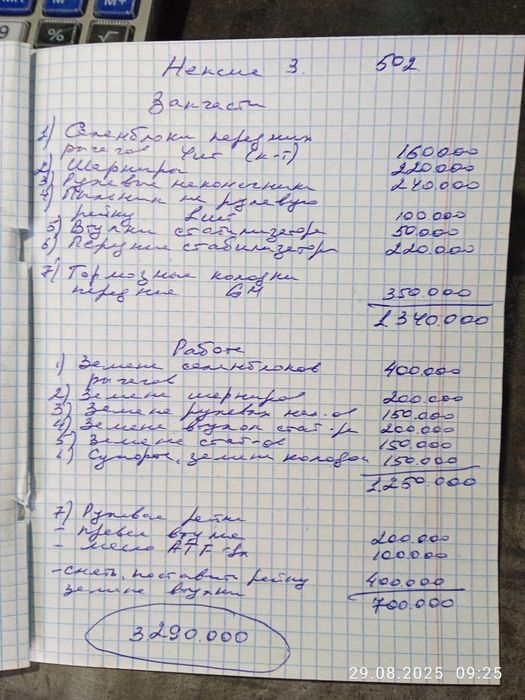 M+
√
Нексия 3. 502.
Запчасти
1) Саленблоки передних
рычегов 4шт (к-т) 160.000
2) Шерниры 220.000
3) Рулевые неконечники 240.000
4) Пыльник не рулевую
рейку 2шт 100.000
5) Втулки стабилизетора 50.000
6) Передние стабилизетора 220.000
7) Тормозные колодки
передние GM 350.000
1.340.000
Работе
1) Замене саленблоков 400.000
рычегов
2) Замене шерниров 200.000
3) Замене рулевых нак-ов 150.000
4) Замене втулок стаб-ре 200.000
5) Замене стаб-ов 150.000
6) Супорте, замене колодок 150.000
1.250.000
7) Рулевая рейка
- превея втулке 200.000
- месло ATF 100.000
- снеть, поставить рейку 400.000
замене втулки
700.000
3290.000
29.08.2025 09:25